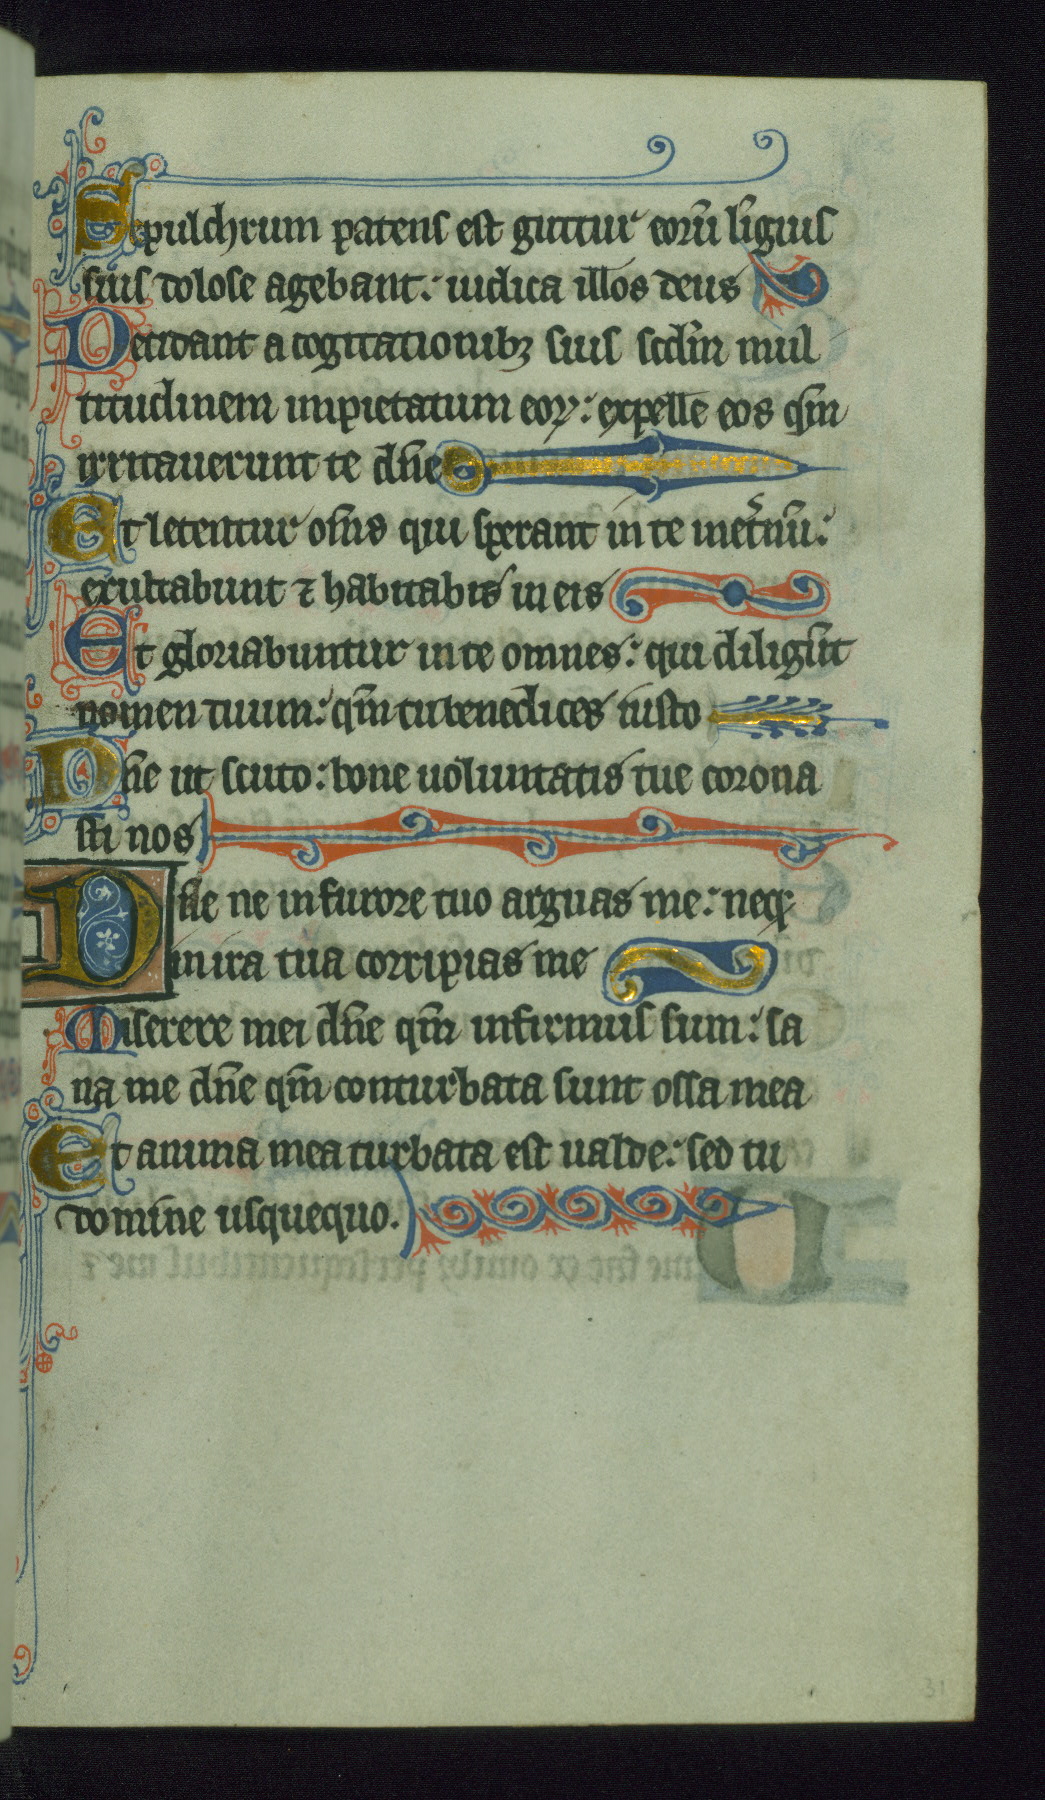 Sepulchrum patens est guttur eorū līguis
suis dolose agebant: iudica illos deus
Decidant a cogitationibꝫ suis scdm̄ mul
titudinem impietatum eoꝝ: expelle eos qm̄
irritauerunt te dn̄e
Et letentur om̄s qui sperant in te ī et̾nū:
exultabunt ⁊ habitabis in eis
Et gloriabuntur in te omnes: qui diligūt
nomen tuum: qm̄ tu benedices iusto
Dn̄e ut scuto: bone uoluntatis tue corona
sti nos
Dn̄e ne in furore tuo arguas me: neqꝫ
in ira tua corripias me
Miserere mei dn̄e qm̄ infirmus sum: sa
na me dn̄e qm̄ conturbata sunt ossa mea
Et anima mea turbata est ualde: sed tu
domine usquequo.
31